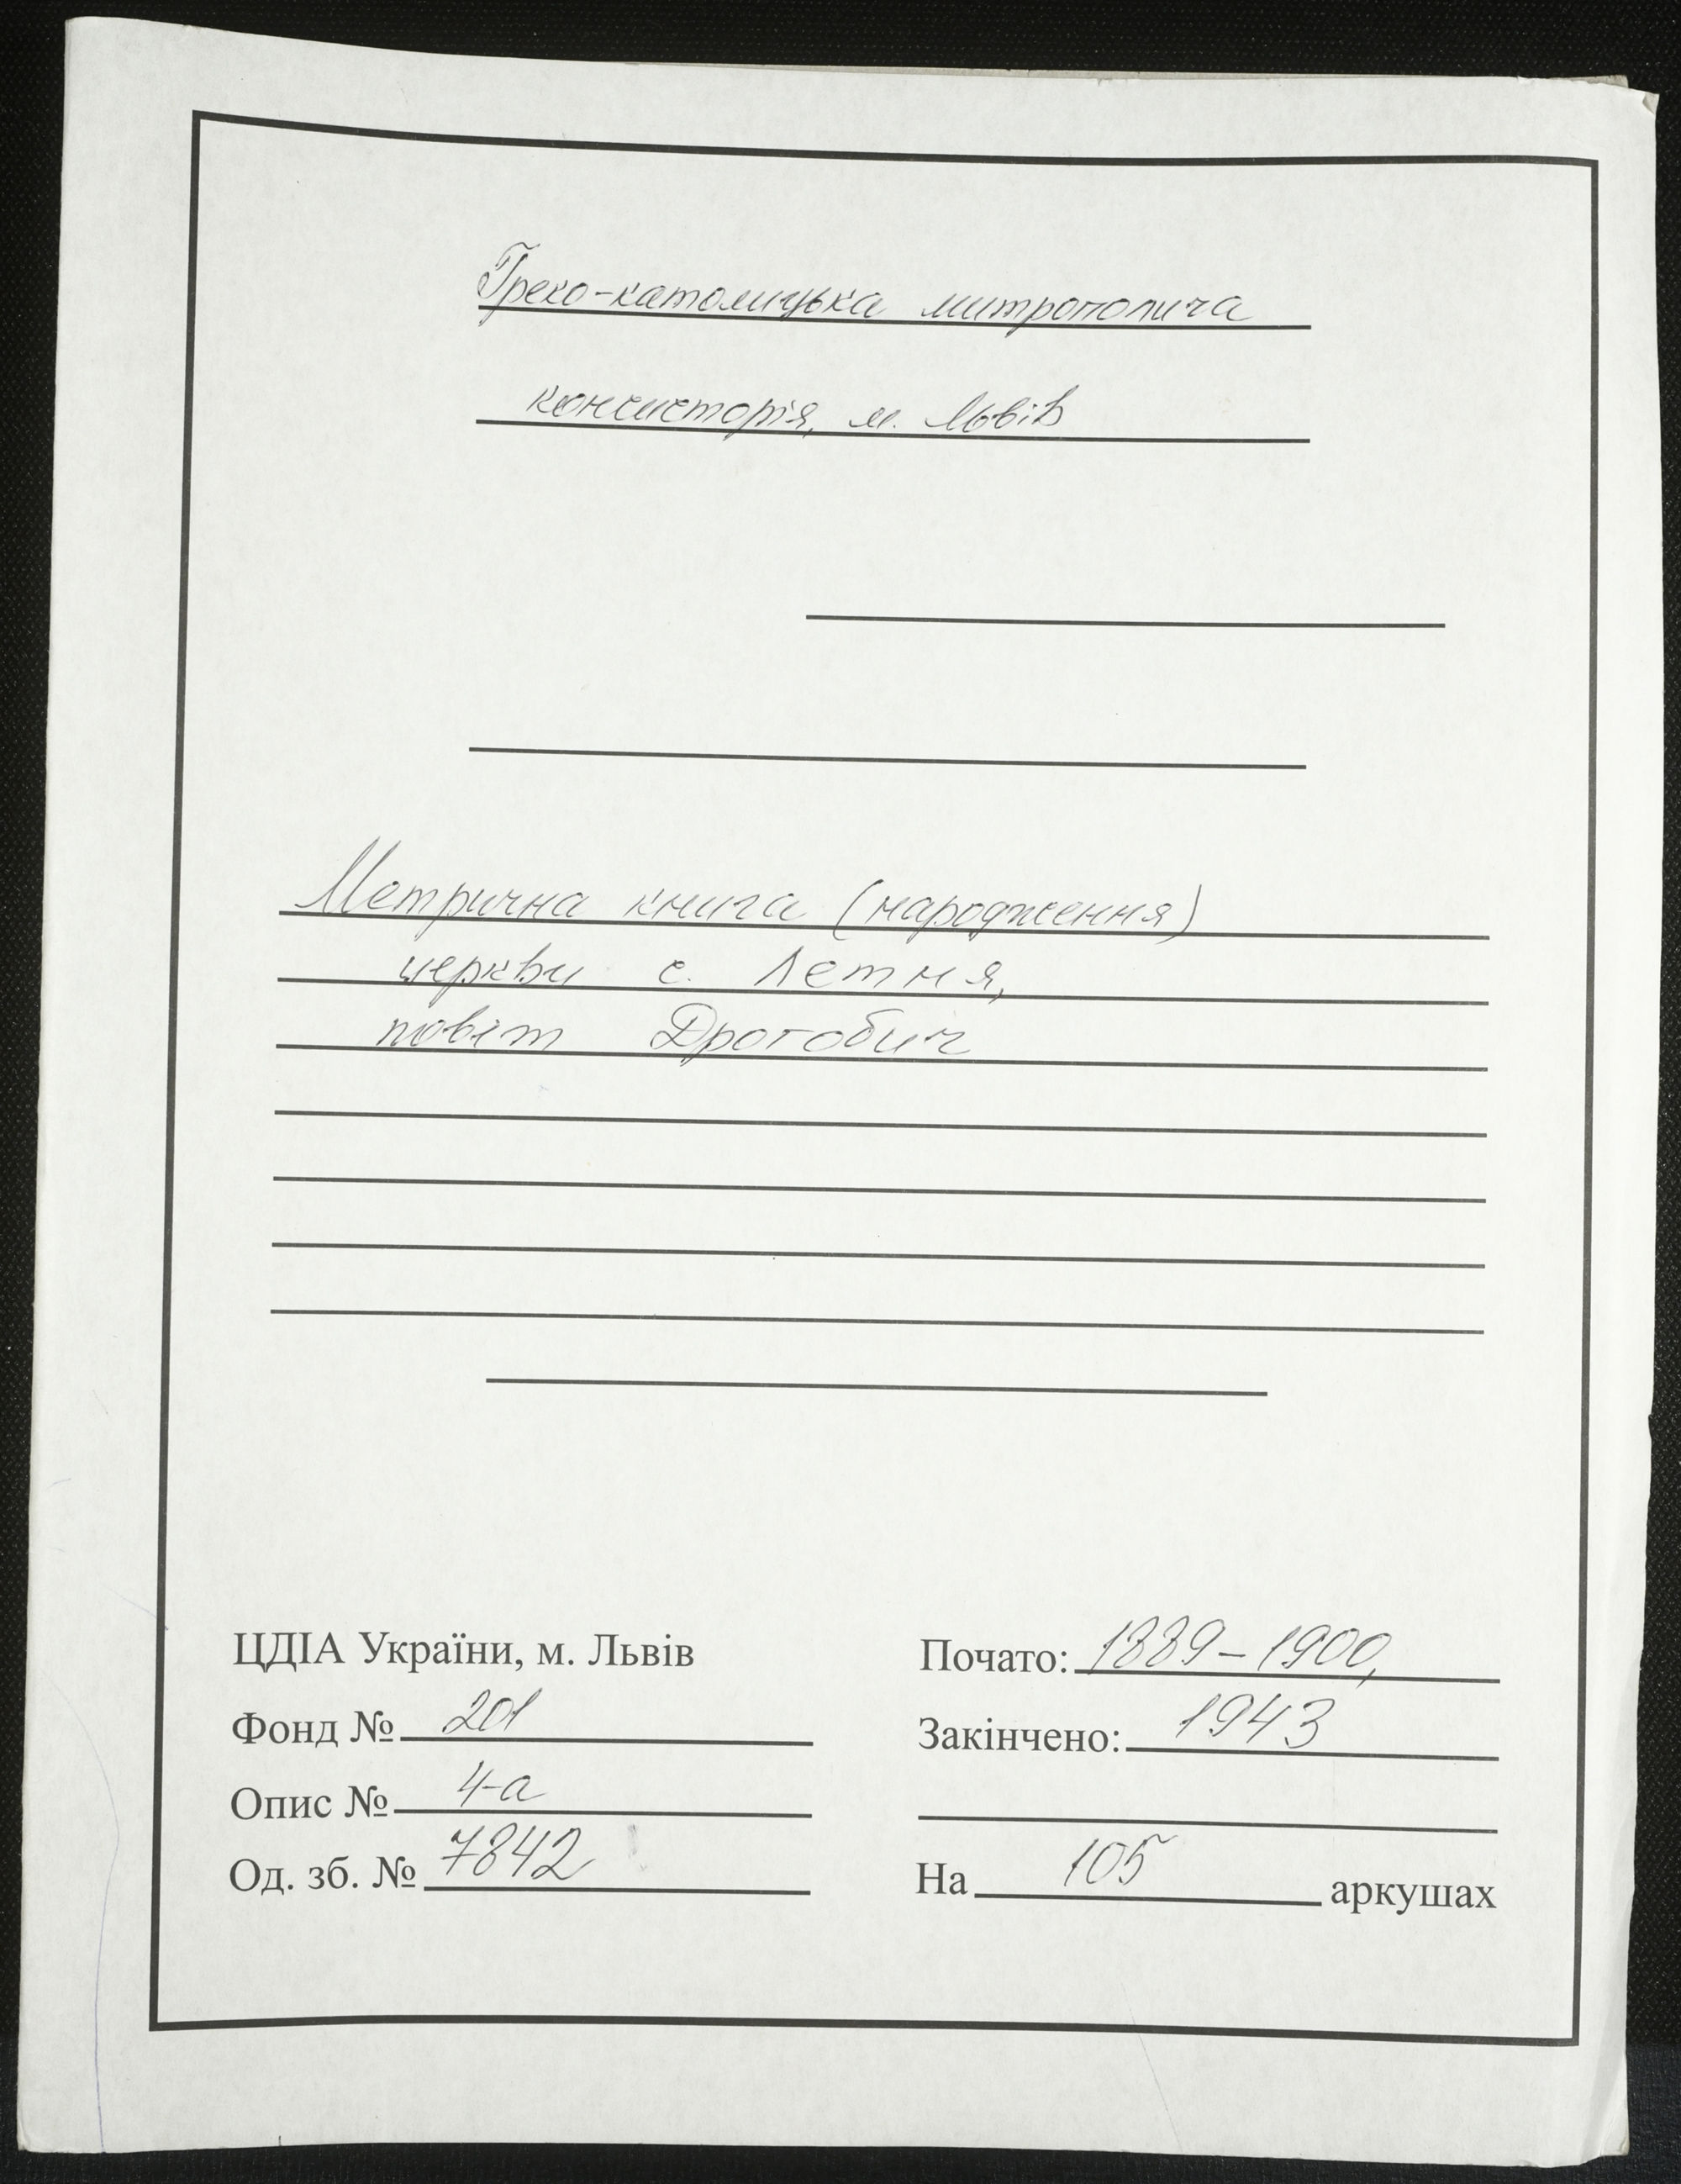 Греко-католицька митрополича
консисторія, м. Львів
Метрична книга (народження)
церкви с. Летня,
повіт Дрогобич
ЦДІА України, м. Львів
Фонд № 201
Опис № 4-а
Од. зб. № 7842
Почато: 1889-1900,
Закінчено: 1943
На 105 аркушах